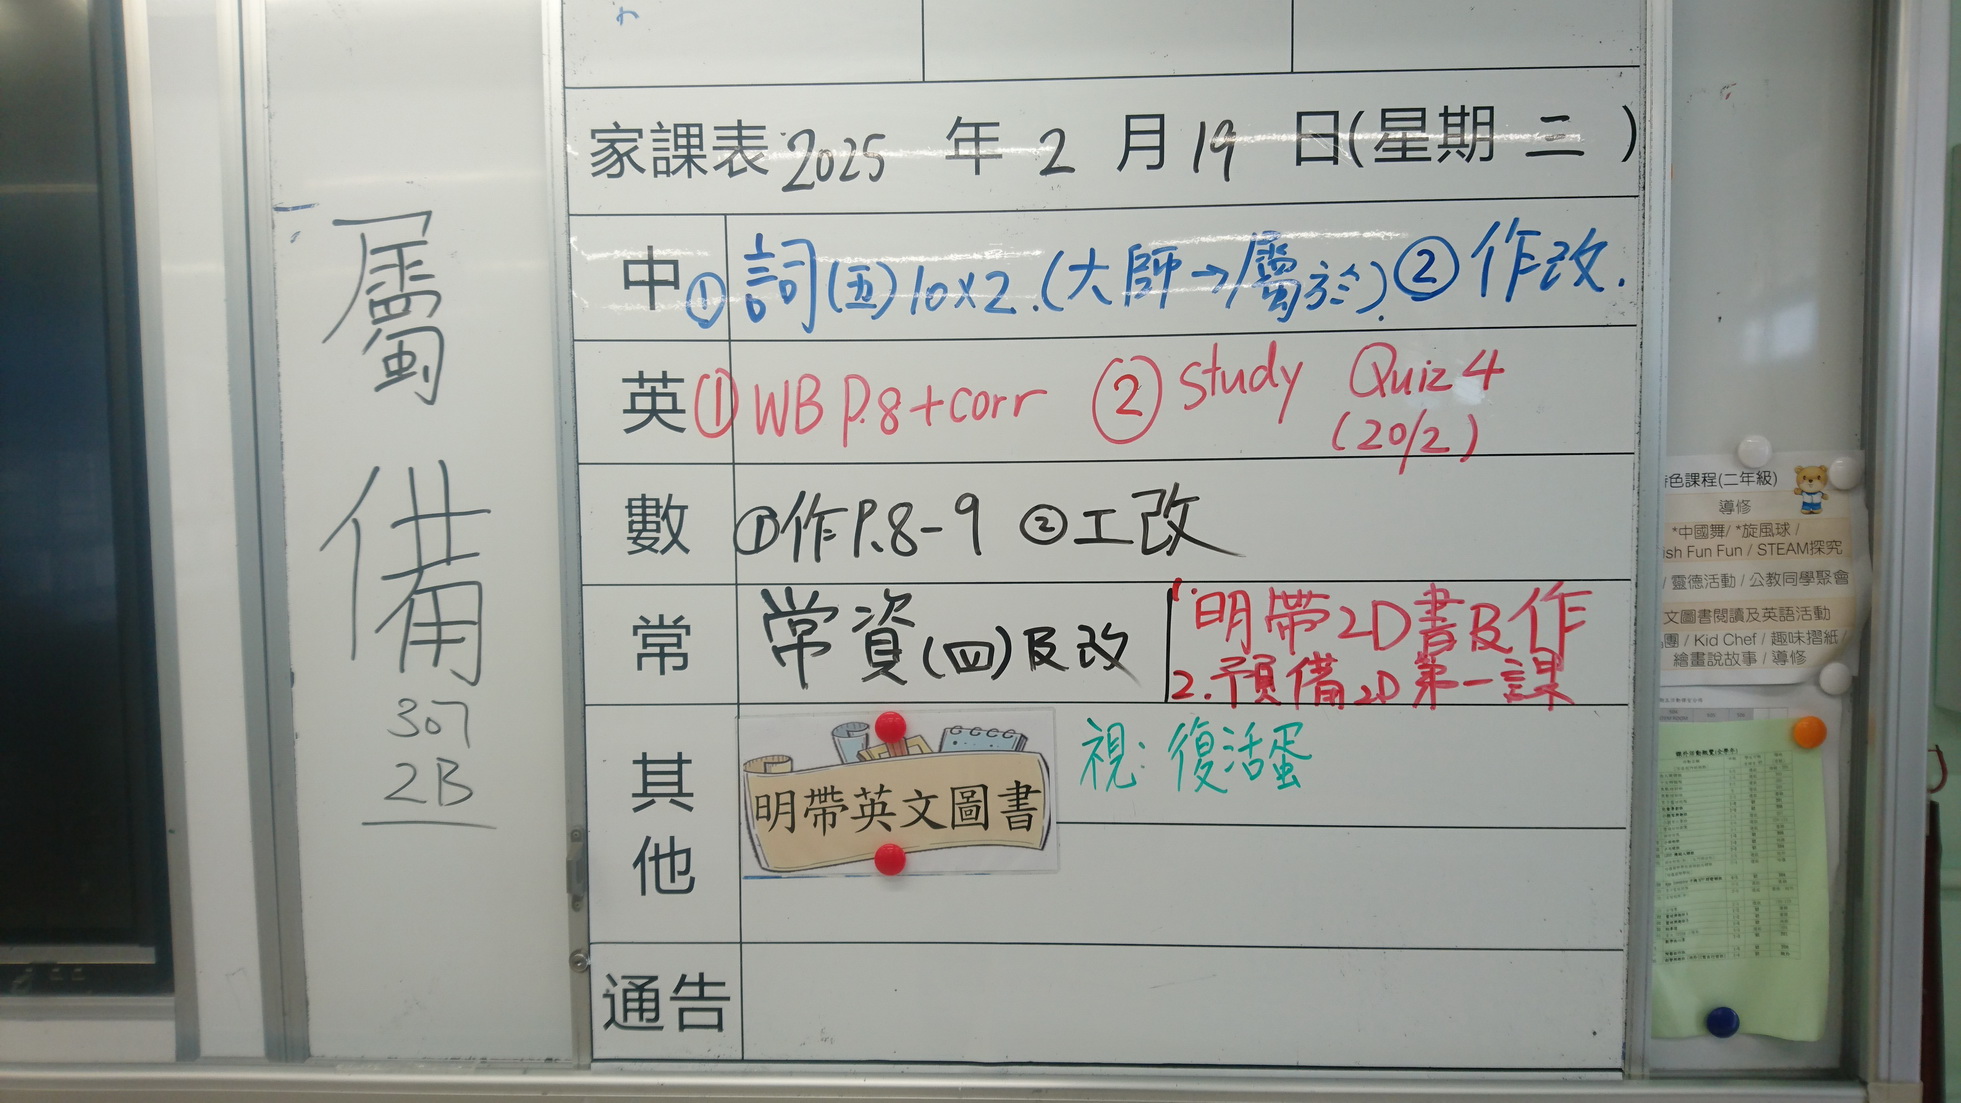 屬
備
307
2B
家課表 2025 年 2 月 19 日(星期 三 )
中 ① 詞(五)10×2.(大師→屬於). ② 作改.
英 ① WB P.8+corr ② Study Quiz 4
(20/2)
數 ①作P.8-9 ②工改
常 常資(四)及改
1.明帶2D書及作
2.預備2D第一課
其他
明帶英文圖書
視:復活蛋
通告
色課程(二年級)
導修
*中國舞/ *旋風球 /
ish Fun Fun / STEAM探究
/ 靈德活動 / 公教同學聚會
文圖書閱讀及英語活動
團 / Kid Chef / 趣味摺紙 /
繪畫說故事 / 導修